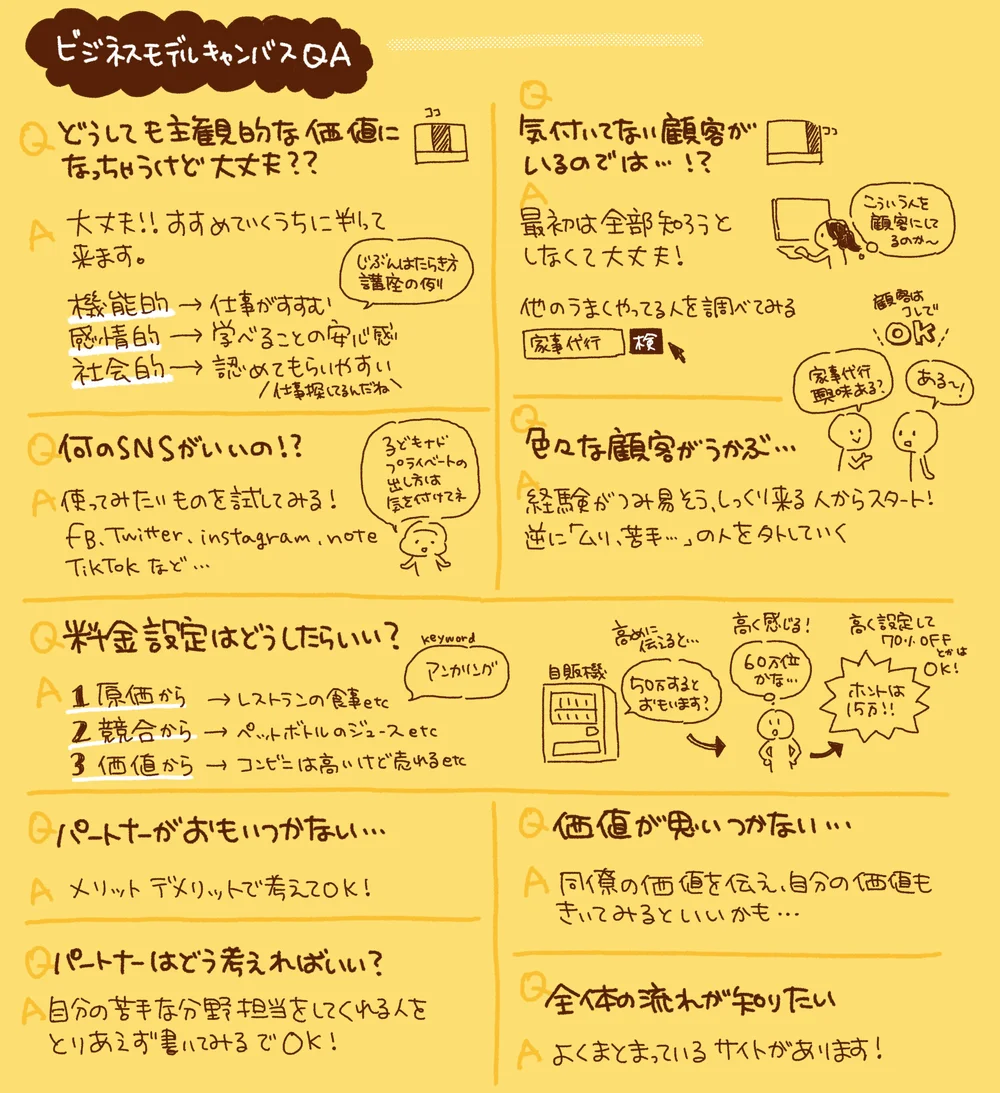 ビジネスモデルキャンバスQA
Q どうしても主観的な価値に
なっちゃうけど大丈夫??
ココ
A 大丈夫!! おすすめていくうちに判って
来ます。
じぶんはたらき方
講座の例
機能的→仕事がすすむ
感情的→学べることの安心感
社会的→認めてもらいやすい
/仕事探してるんだね\
Q 何のSNSがいいの!?
A 使ってみたいものを試してみる!
FB、Twitter、instagram、note
TikTok など…
子どもナド
プライベートの
出し方は
気を付けてネ
Q
気付いてない顧客が
いるのでは…!?
ココ
A
最初は全部知ろうと
しなくて大丈夫!
こういう人を
顧客にして
るのか〜
他のうまくやってる人を調べてみる
家事代行 検
顧客は
コレで
OK
家事代行
興味ある?
ある〜!
Q
色々な顧客がうかぶ…
A
経験がつみ易そう、しっくり来る人からスタート!
逆に「ムリ、苦手…」の人を外していく
Q 料金設定はどうしたらいい?
keyword
アンカリング
A 1 原価から → レストランの食事etc
2 競合から → ペットボトルのジュースetc
3 価値から → コンビニは高いけど売れるetc
自販機
高めに
伝えると…
50万すると
おもいます?
高く感じる!
60万位
かな…
高く設定して
70%OFF
とかは
OK!
ホントは
15万!!
Q パートナーがおもいつかない…
A メリット デメリットで考えてOK!
Q 価値が思いつかない…
A 同僚の価値を伝え、自分の価値も
きいてみるといいかも…
Q パートナーはどう考えればいい?
A 自分の苦手な分野担当をしてくれる人を
とりあえず書いてみるでOK!
Q 全体の流れが知りたい
A よくまとまっているサイトがあります!